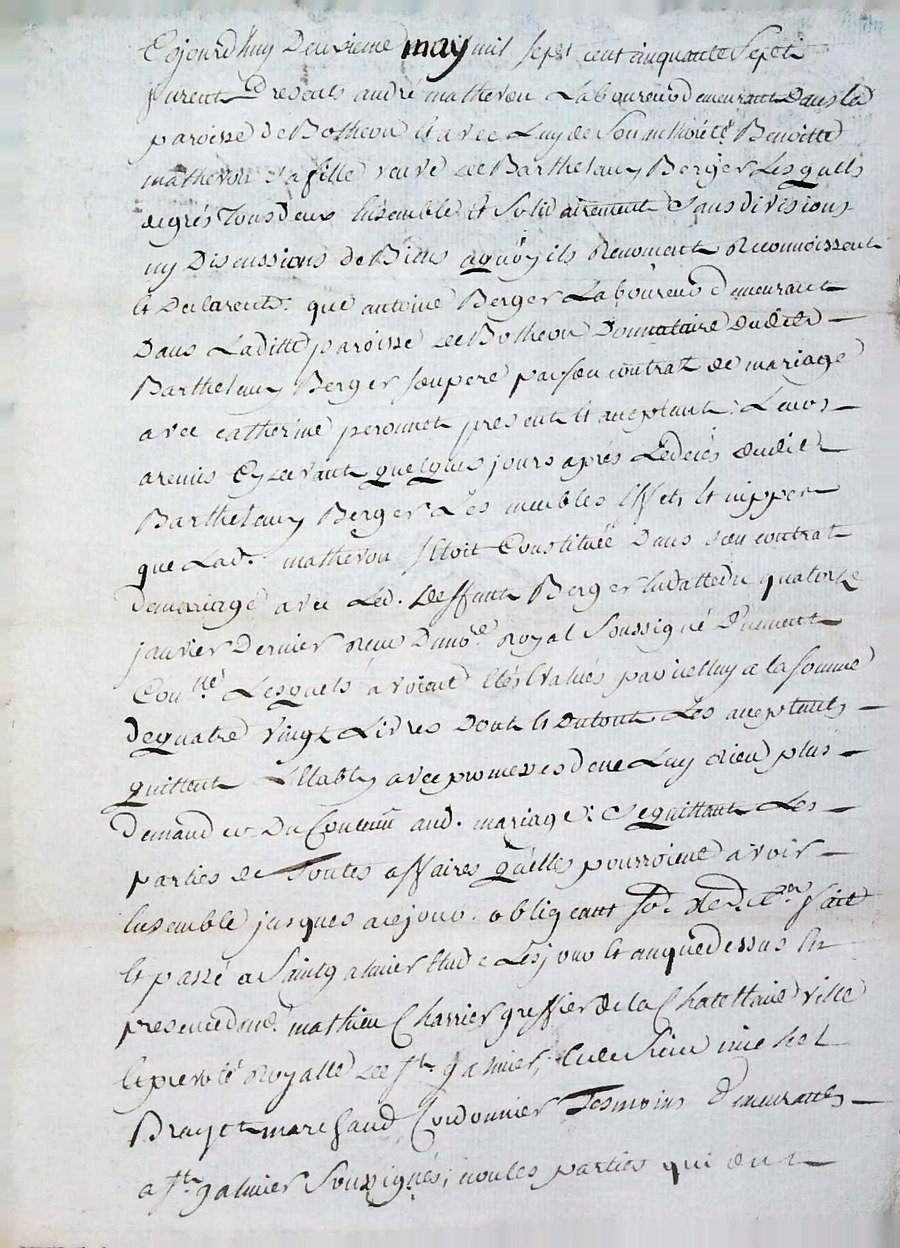 Cejourd'huy Deuxieme may mil sept cent cinquante Sept
furent Presents andré matheron Laboureur demeurant dans la
paroisse de Botheon et avec Luy de Son authorité Benoitte
matheron Sa fille veuve de Barthelemy Berger Lesquels
degrés Tous deux Ensemble et Solidairement Sans divisions
ny Discussions de Biens aquoy ils Renoncent Reconnoissent
et Declarent. que antoine Berger Laboureur demeurant
Dans Laditte paroisse de Botheon Donnataire dudit
Barthelemy Berger Son pere par son contrat de mariage
avec catherine peronnet present et aceptant; Leur
aremis Cydevant quelques jours aprés Ledeces dudit
Barthelemy Berger Les meubles Effets et nippes
que Lad. matheron S'Etoit Constituée Dans son contrat
demariage avec Led. deffunt Berger endatte du quatorze
janvier Dernier Receu Du no.re Royal Soussigné Duement
Con.llé Lesquels avoient Etés Evalués par icelluy a la somme
dequatre vingt Livres Dont et Dutout Les aceptants
quittent avec promesses de ne Luy Rien plus
demander Du Contenu aud. mariage; Sequittant Les
parties de Toutes affaires quelles pourroient avoir
Ensemble jusques acejour. obligeant fait
et passé a Saint galmier Etude Lesjour et anquedessus En
presence de me. mathieu Charrier greffier de la Chatellenie ville
et prevoté Royalle de St. galmier, et de Sieur michel
Brayet marchand Cordonnier Tesmoins demeurants
a St. galmier Soussignés; non les parties qui ont